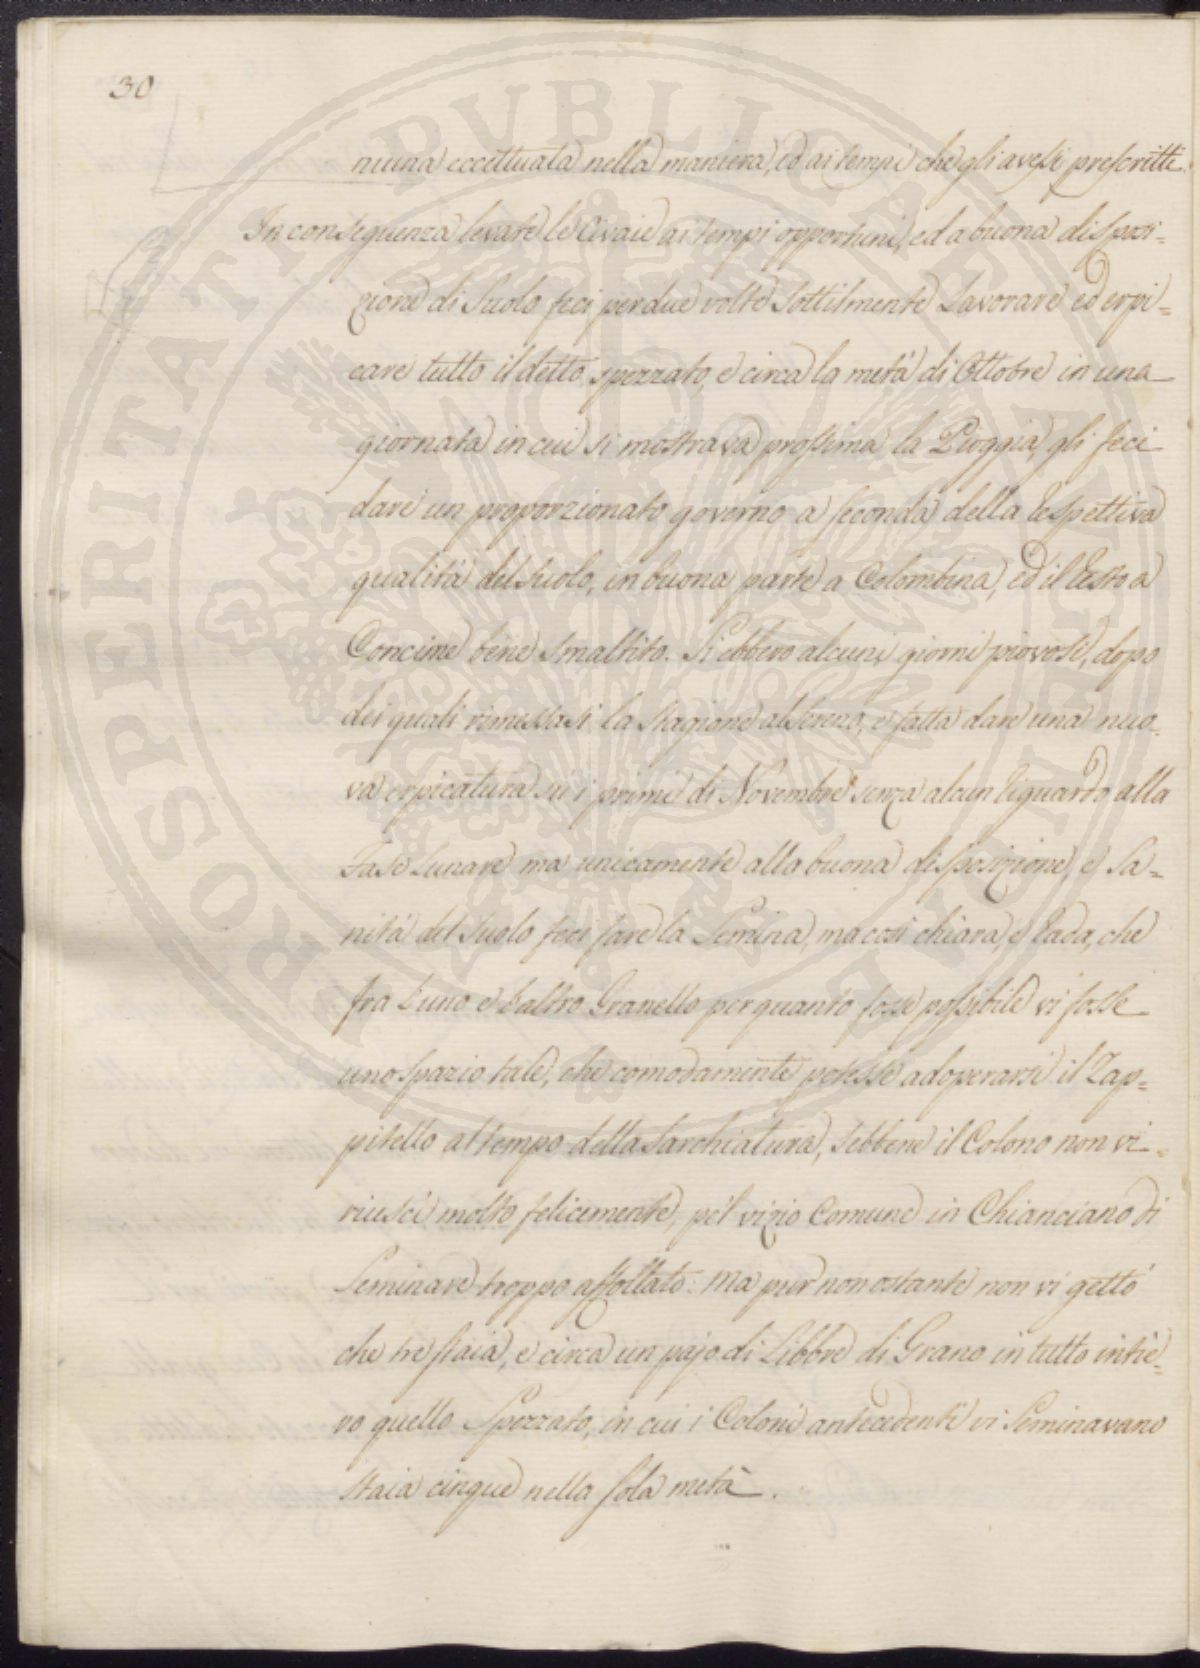 30
niuna eccettuata nella maniera, ed ai tempi che gli avessi prescritti.
In conseguenza levate le Civaie ai tempi opportuni, ed a buona disposi=
zione di Suolo feci per due volte sottilmente Lavorare ed erpi=
care tutto il detto spezzato, e circa la metà di Ottobre in una
giornata in cui si mostrava prossima la Pioggia, gli feci
dare un proporzionato governo a seconda della respettiva
qualità del Suolo, in buona parte a Colombina, ed il resto a
Concime bene smaltito. Si ebbero alcuni giorni piovosi, dopo
dei quali rimessasi la stagione al Sereno, e fatta dare una nuo=
va erpicatura su i primi di Novembre senza alcun riguardo alla
Fase Lunare ma unicamente alla buona disposizione, e Sa=
nità del Suolo feci fare la Semina, ma così chiara, e rada, che
fra l'uno e l'altro Granello per quanto fosse possibile vi fosse
uno spazio tale, che comodamente potesse adoperarsi il Zap=
pitello al tempo della Sarchiatura, sebbene il Colono non vi
riuscì molto felicemente, pe'l vizio Comune in Chianciano di
Seminare troppo affollato: ma pur non ostante non vi gettò
che tre staia, e circa un pajo di Libbre di Grano in tutto intie=
ro quello Spezzato, in cui i Coloni antecedenti vi Seminavano
staia cinque nella sola metà.
PROSPERITATI PVBLICAE AVGENDAE